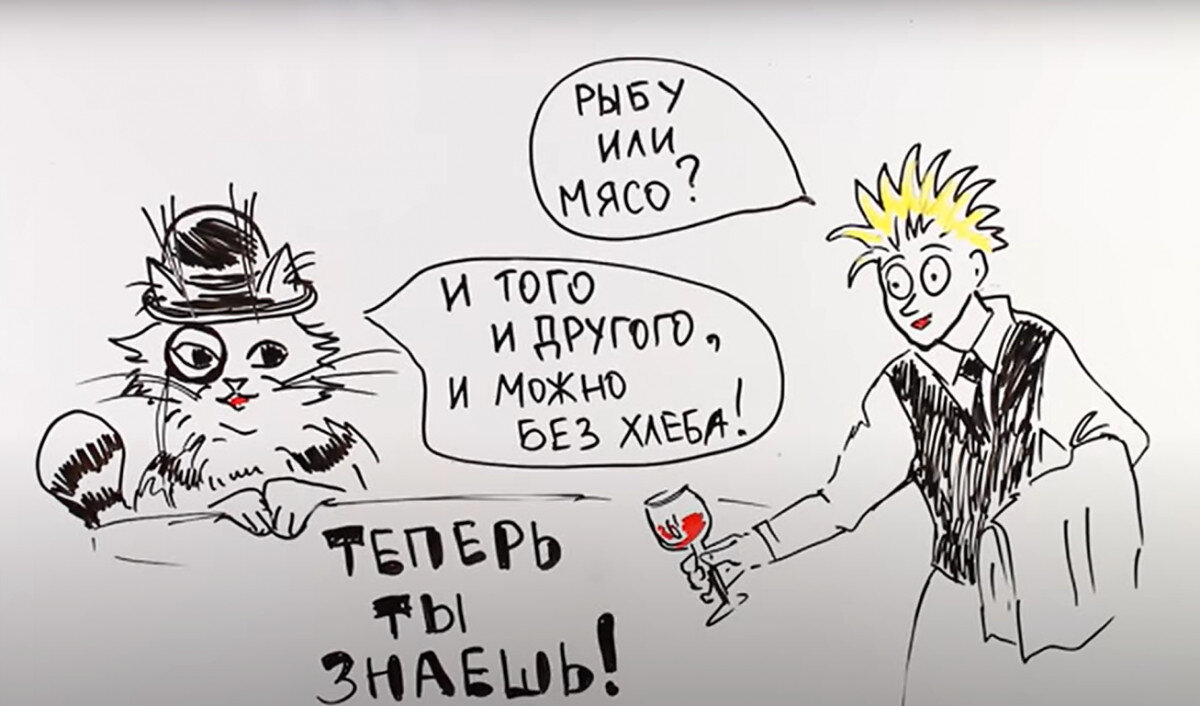 РЫБУ
ИЛИ
МЯСО?
И ТОГО
И ДРУГОГО,
И МОЖНО
БЕЗ ХЛЕБА!
ТЕПЕРЬ
ТЫ
ЗНАЕШЬ!